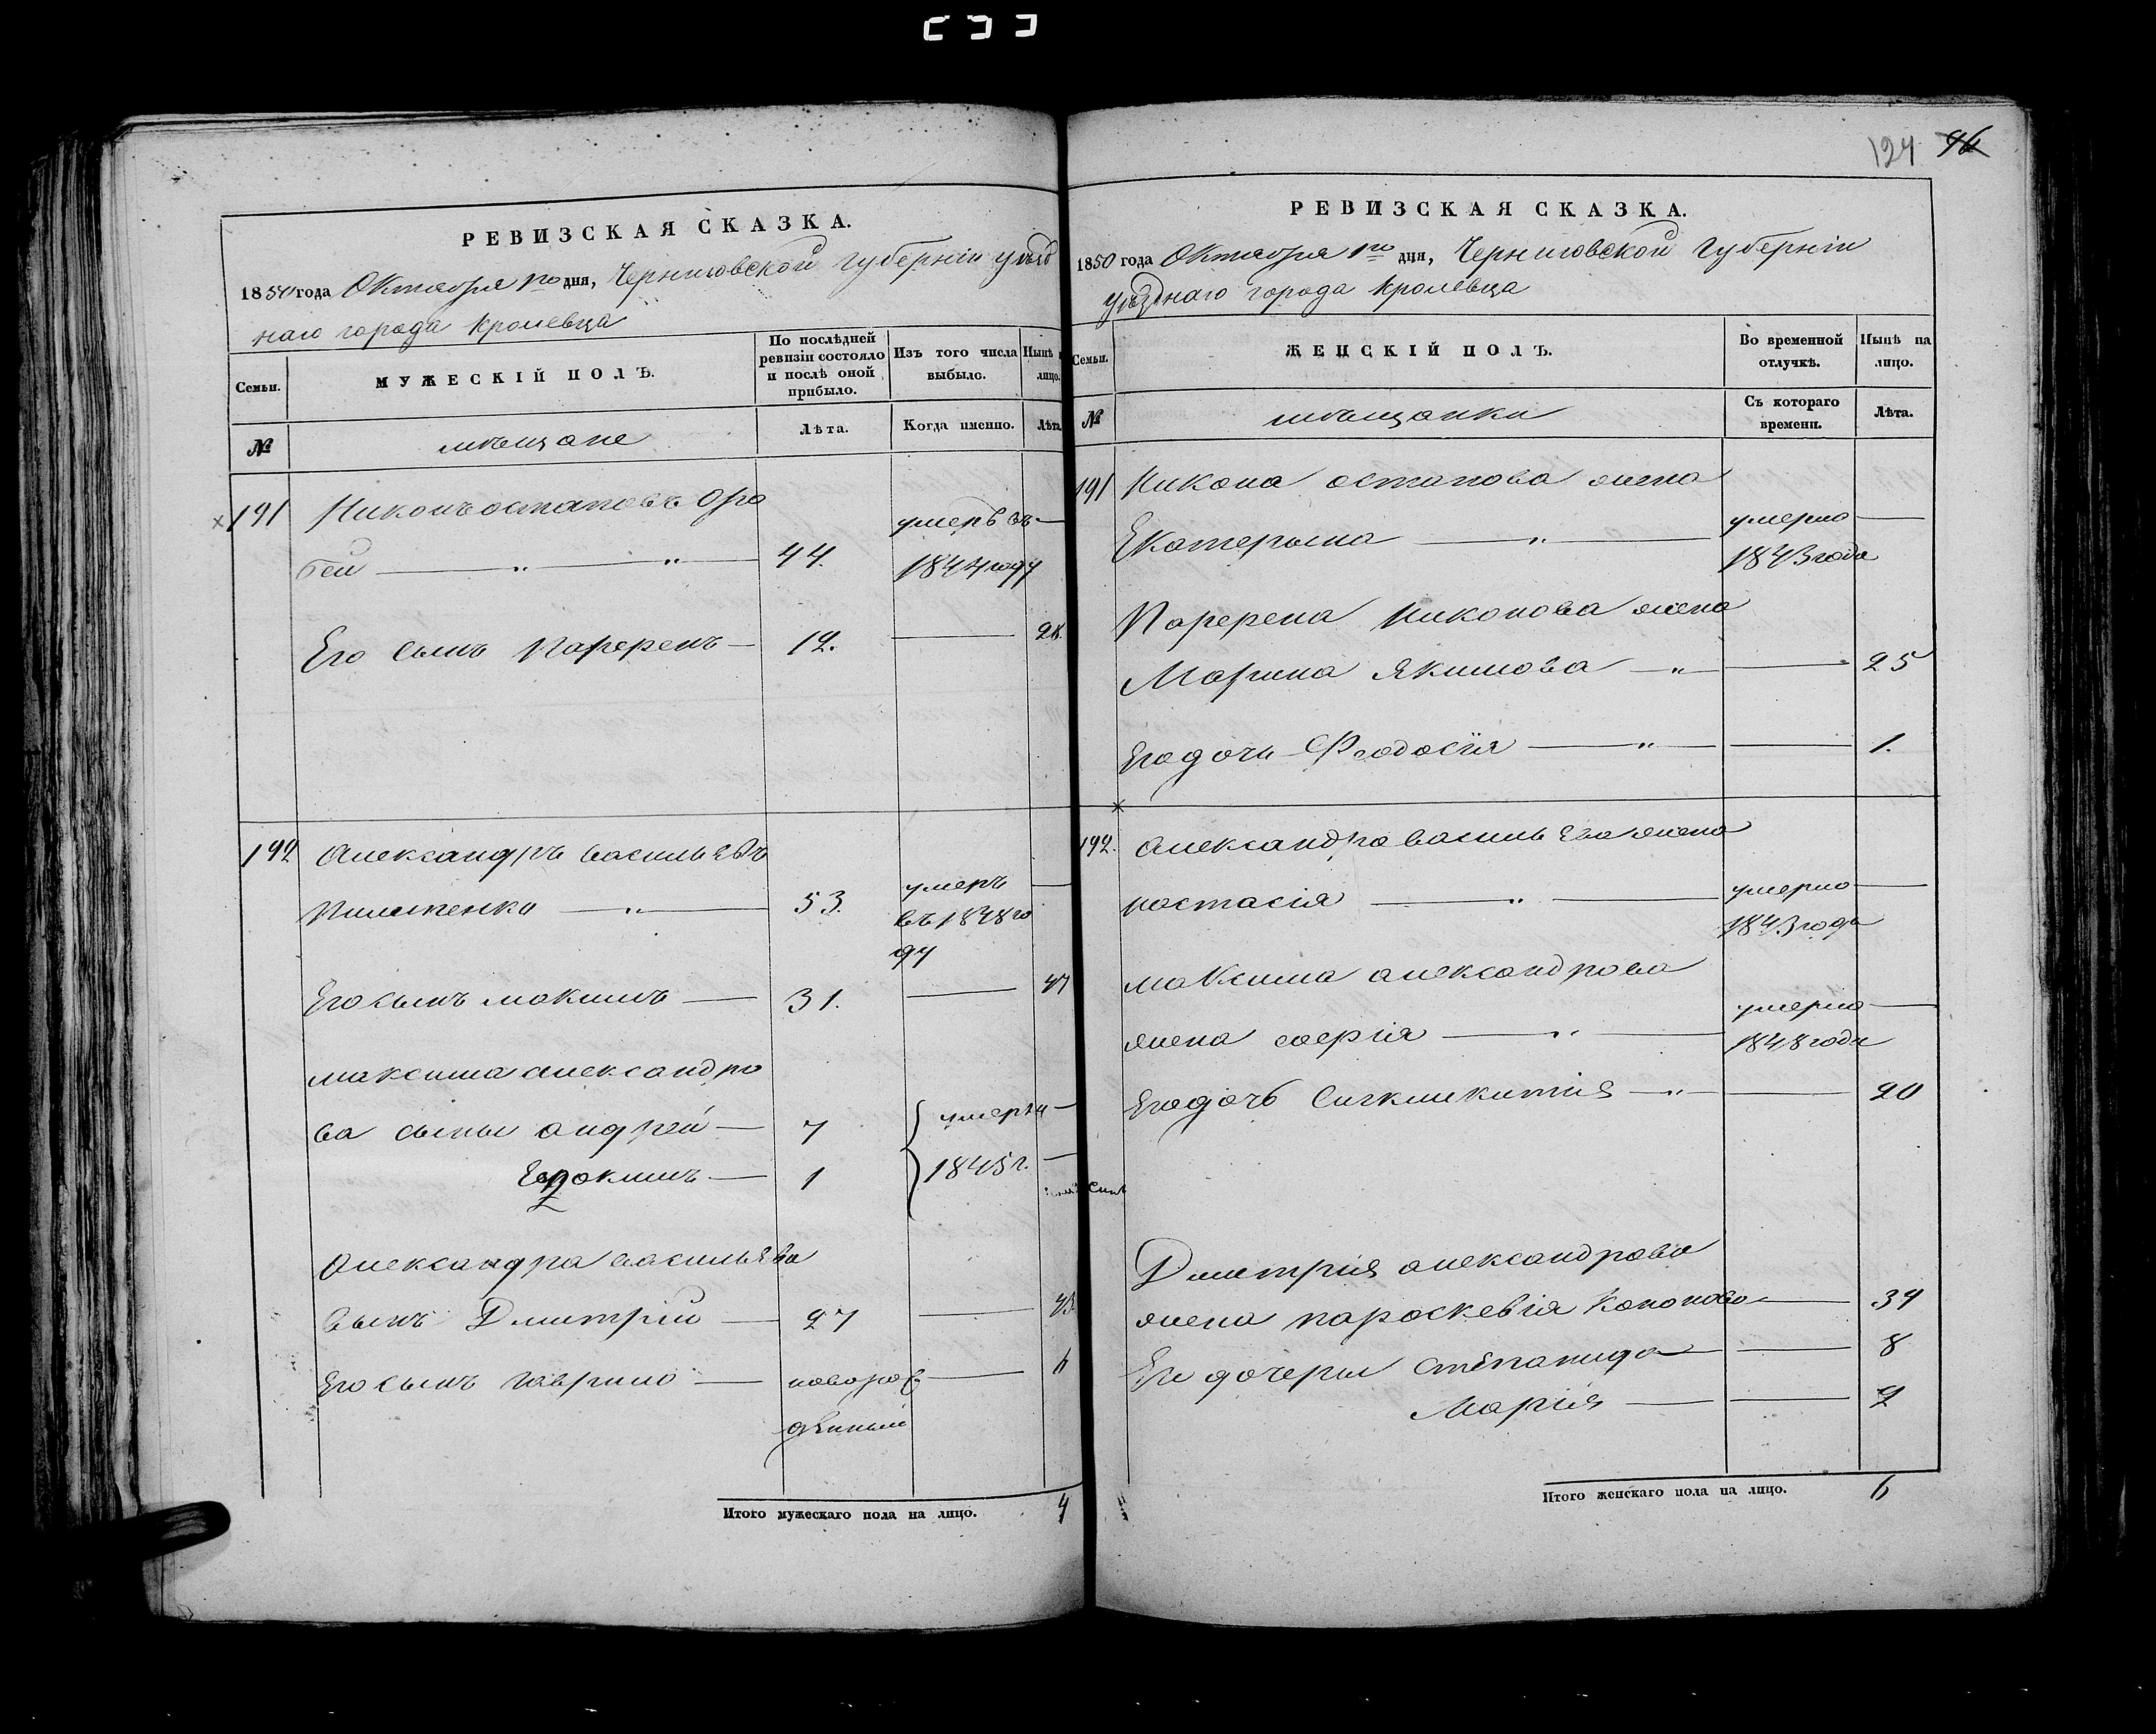 РЕВИЗСКАЯ СКАЗКА.
1850 года Октября 1го дня, Черниговской губерніи уѣзд
наго города Кролевца
Семьи.
МУЖЕСКІЙ ПОЛЪ.
По послѣдней
ревизіи состояло
и послѣ оной
прибыло.
Изъ того числа
выбыло.
Нынѣ
лицо.
№
мѣщане
Лѣта.
Когда именно.
Лѣта
191 Никонъ остаповъ Оро
бей 44.
умеръ въ
1844 году
Его сынъ Парфенъ 12. 28.
192 Александръ васильевъ
Пилипенко 53.
умеръ
въ 1848 го
ду
Его сынъ макимъ 31. 47
максима александро
ва сыны андрей 7
Евдокимъ 1
умерли
1845 г.
Александра васильева
сынъ Дмитрій 27 43.
Его сынъ гаврило новорож
денный
Итого мужескаго пола на лицо. 4
124 96
РЕВИЗСКАЯ СКАЗКА.
1850 года Октября 1го дня, Черниговской Губерніи
уѣзднаго города Кролевца
Семьи.
ЖЕНСКІЙ ПОЛЪ.
Во временной
отлучкѣ.
Нынѣ на
лицо.
№
мѣщанки
Съ котораго
времени.
Лѣта.
191 Никона остапова жена
Екатерына
умерла
1843 года
Парфена Никонова жена
Марина Якимова 25
Его дочь Феодосія 1.
192. Александра василь ева жена
настасія
умерла
1843 года
маКсима александрова
жена софія
умерла
1848 года
Его дочь 20
Дмитрія александрова
жена параскевія Кононова 34
Его дочеры степанида 8
Марія 2
Итого женскаго пола на лицо. 6